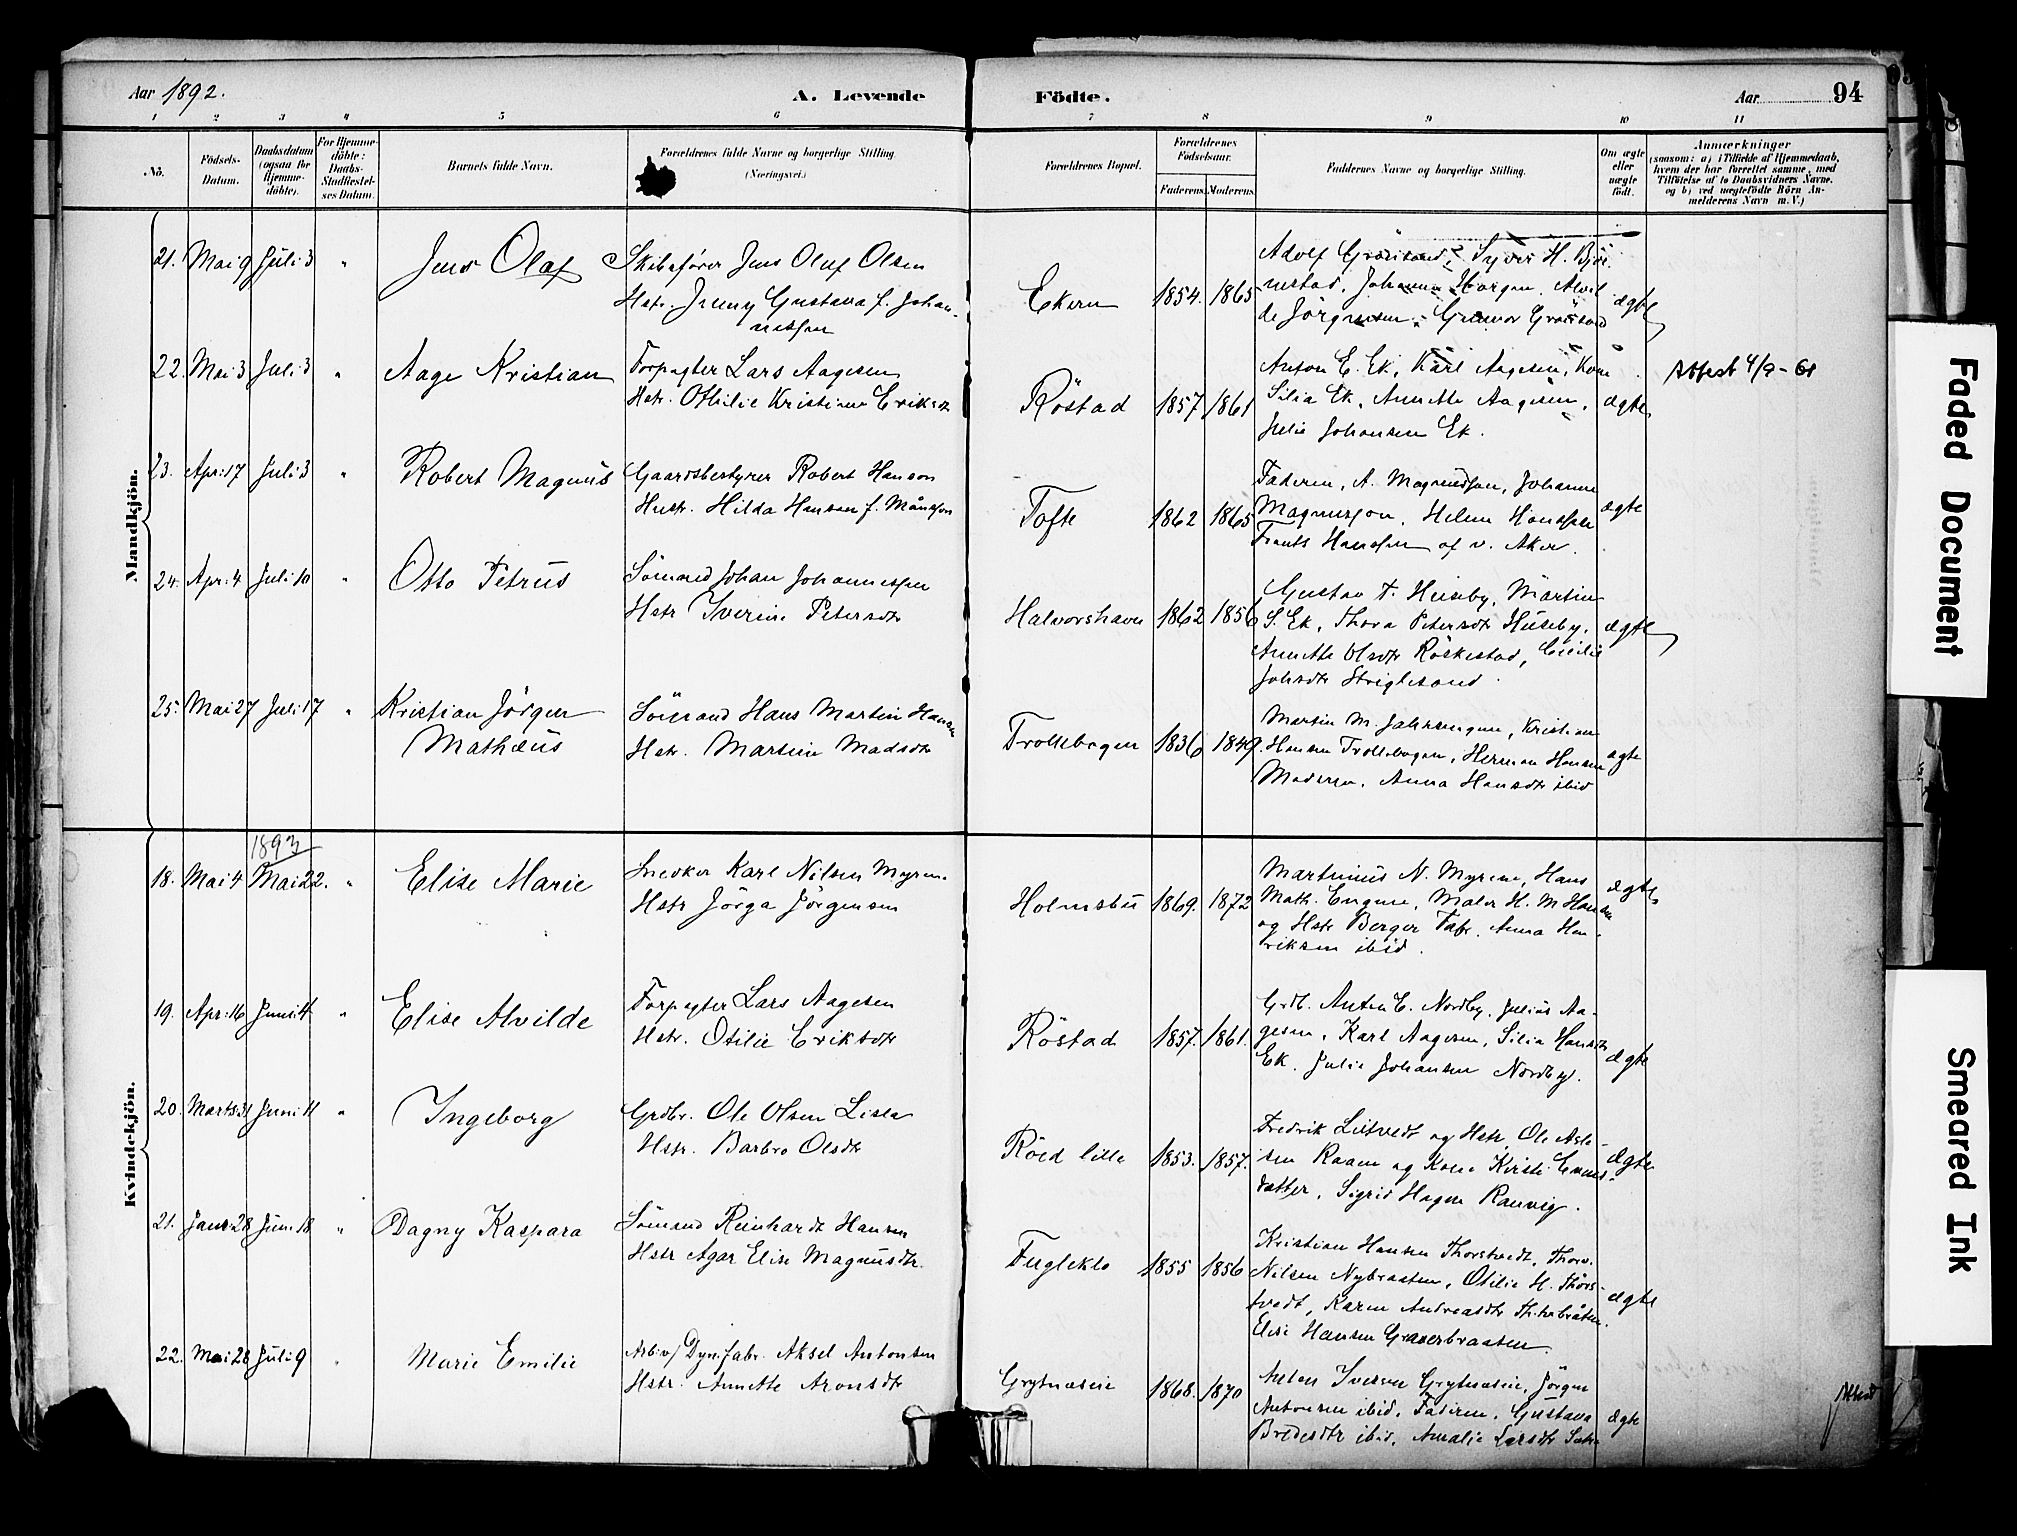 Aar 1892.
A. Levende
Födte.
Aar
94
1 2 3 4 5 6 7 8 9 10 11
No.
Födsels-
Datum.
Daabsdatum
(ogsaa for
Hjemme-
döbte).
For Hjemme-
döbte:
Daabs-
Stadfæstel-
ses Datum.
Barnets fulde Navn.
Forældrenes fulde Navne og borgerlige Stilling
(Næringsvei.)
Forældrenes Bopæl.
Forældrenes
Födselsaar.
Faderens. Moderens.
Faddernes Navne og borgerlige Stilling.
Om ægte
eller
uægte
födt.
Anmærkninger
(saasom: a) i Tilfælde af Hjemmedaab,
hvem der har forrettet samme, med
Tilföielse af to Daabsvidners Navne.
og b) ved uægtefödte Börn An-
melderens Navn m. V.)
Mandkjön.
21. Mai 9 Juli 3 " Jens Olaf Skibsfører Jens Oluf Olsen
Hstr. Jenny Gustava f. Johan-
nessen
Ekern 1854. 1865
Adolf Grøisand, Syver H. Bjør-
nstad, Johanna Horgen, Alvil-
de Jörgensen, Gunnor Gröisand
ægte
22. Mai 3 Juli 3 " Aage Kristian Forpagter Lars Aagesen
Hstr. Othilie Kristine Eriksdtr
Röstad 1857 1861
Anton E. Ek, Karl Aagesen, Kone
Silia Ek, Annette Aagesen,
Julie Johansen Ek.
ægte
Attest 4/9-61
23. Apr: 17 Juli 3 " Robert Magnus Gaardsbestyrer Robert Hanson
Hustr. Hilda Hansen f. Månsson
Tofte 1862 1865
Faderen, A. Magnussen, Johanne
Magnusson, Helene Hanssen
Frants Hanssen af v. Aker.
ægte
24. Apr: 4 Juli 10 " Otto Petrus Sömand Johan Johannessen
Hstr Iverine Petersdtr
Halvorshavn 1862 1856
Gustav T. Huseby, Martin
S. Ek, Thora Petersdtr Huseby,
Annette Olsdtr Röskestad, Cecilie
Johsdtr Striglesand.
ægte
25. Mai 27 Juli 17 " Kristian Jörgen
Mathæus
Sömand Hans Martin Hansen
Hstr. Martine Madsdtr
Trollebogen 1836 1849.
Martin M. Jahrsengen, Kristian
Hansen Trollebogen, Herman Hansen
Moderen, Anna Hansdtr ibid
ægte
Kvindekjön.
1893
18. Mai 4 Mai 22. " Elise Marie Snedker Karl Nilsen Myrene
Hstr Jörga Jörgensen
Holmsbu 1869. 1872
Martinius N. Myrene, Hans
Math. Engene, Maler H. M Hansen
og Hstr Berger Fabr. Anna Hen-
riksen ibid.
ægte
19. Apr: 16 Juni 4 " Elise Alvilde Forpagter Lars Aagesen
Hstr. Otilie Eriksdtr
Röstad 1857. 1861.
Grdb. Anton E. Nordby, Julius Aa-
gesen, Karl Aagesen, Silia Hansdtr
Ek. Julie Johansen Nordby.
ægte
20. Marts 31 Juni 11 " Ingeborg Grdbr. Ole Olsen Lislea
Hstr. Barbro Olsdtr
Röed lille 1853. 1857.
Fredrik Lutvedt og Hstr, Ole Asle-
sen Raaen og Kone Kirsti Ewens-
datter, Sigrid Hagen Ranvig.
ægte
21. Janr 28 Juni 18 " Dagny Kaspara Sömand Reinhardt Hansen
Hstr Agar Elise Magnusdtr.
Fugleklo 1855 1856
Kristian Hansen Thorstvedt, Thorv.
Nilsen Nybraaten, Otilie H. Thors-
tvedt, Karen Andreasdtr
Elise Hansen Graverbraaten.
ægte
22. Mai 28 Juli 9 " Marie Emilie Arb. v/ Dyn. fabr. Aksel Antonsen
Hstr. Annette Aronsdtr
Grytnæseie 1868. 1870
Anton Iversen Grytnæseie, Jörgen
Antonsen ibid, Faderen, Gustava
Bredesdtr ibid, Amalie Larsdtr
ægte
Attest
Faded Document
Smeared Ink